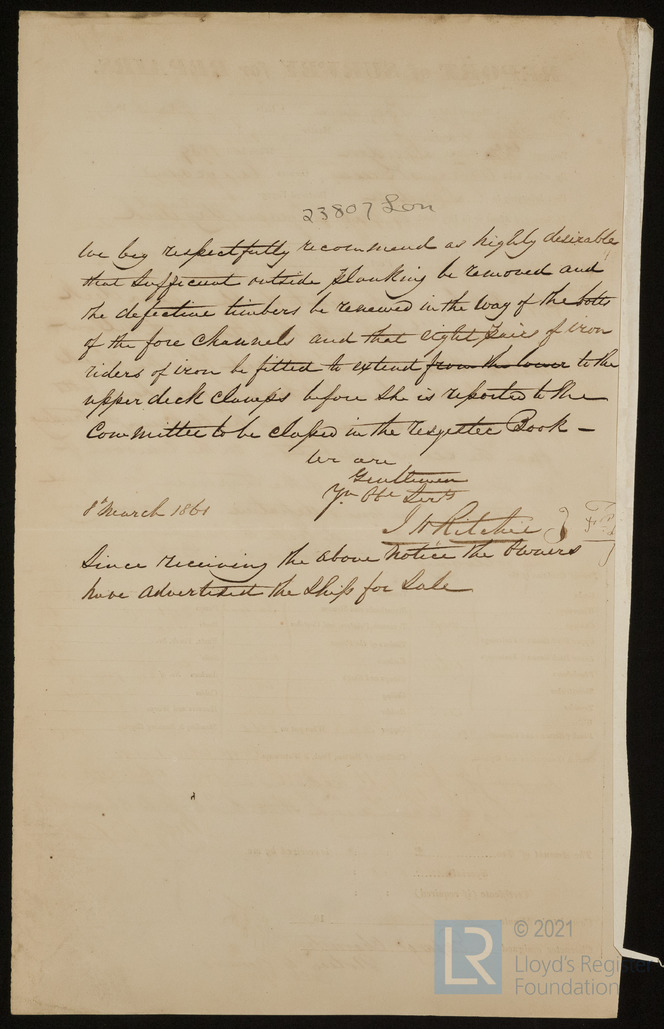 23807 Lon
We beg respectfully recommend as highly desirable
that sufficient outside planking be removed and
the defective timbers be renewed in the way of the bolts
of the fore channels and that eight pairs of iron
riders of iron be fitted to extend from the lower to the
upper deck clamps before she is reported to the
Committee to be classed in the register Book –
We are
Gentlemen
Yr Obt Servts
8th March 1861
J H Ritchie
Since receiving the above notice the Owners
have advertised the Ship for Sale
© 2021
LR
Lloyd's Register
Foundation